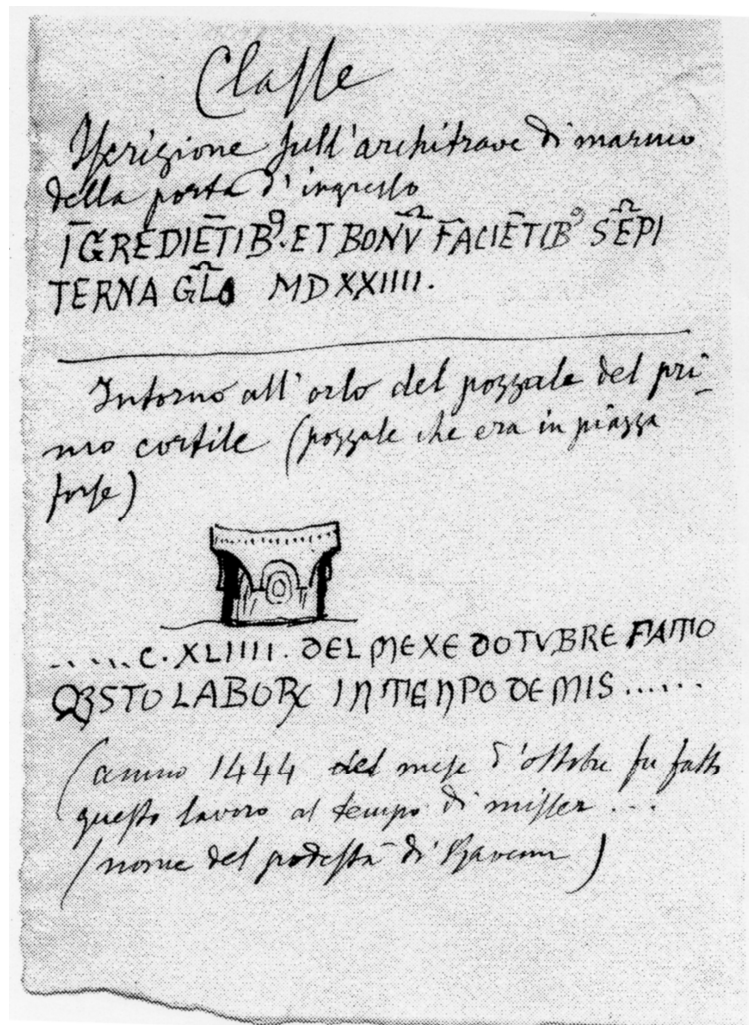 Classe
Iscrizione sull'architrave di marmo
della porta d'ingresso
ĪGREDIĒTIB⁹. ET BONV̄ FACIĒTIB⁹ SĒPI
TERNA GL̄A MDXXIIII.
Intorno all'orlo del pozzale del pri-
mo cortile (pozzale che era in piazza
forse)
.....C. XLIIII. DEL MEXE DOTVBRE FATTO
STO LABOR IN TENPO DE MIS ......
(anno 1444 del mese d'ottobre fu fatto
questo lavoro al tempo di misser ...
(nome del podestà di Ravenna)